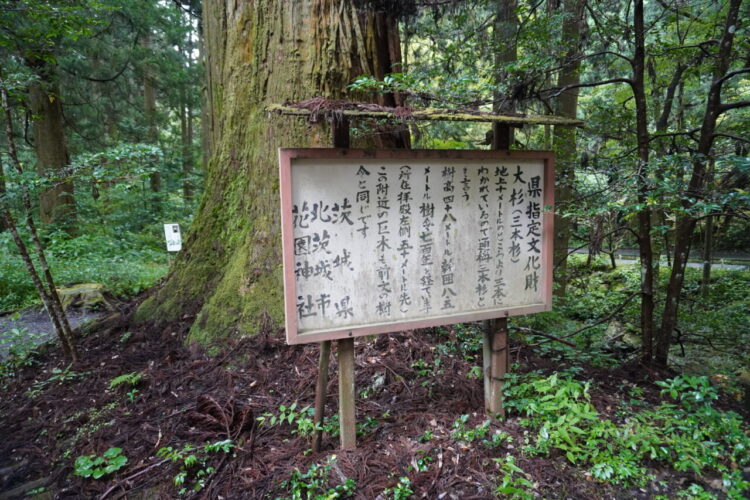 県指定文化財
大杉(三本杉)
地上十メートルのところより三本に
わかれているので通称三本杉と
も言う
樹高四十八メートル幹囲八・五
メートル樹令七百年と経て〻す
(所在拝殿左側五十メートル先)
この附近の巨木も前文の樹
令と同じです
茨城県
北茨城市
花園神社